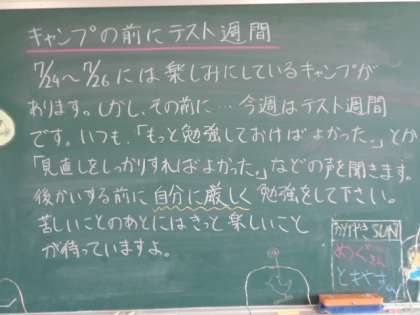 キャンプの前にテスト週間
7/24〜7/26には楽しみにしているキャンプが
あります。しかし、その前に…今週はテスト週間
です。いつも、「もっと勉強しておけばよかった。」とか
「見直しをしっかりすればよかった。」などの声を聞きます。
後かいする前に自分に厳しく勉強をして下さい。
苦しいことのあとにはきっと楽しいこと
が待っていますよ。
かがやきSUN
めぐさん
ときやさん